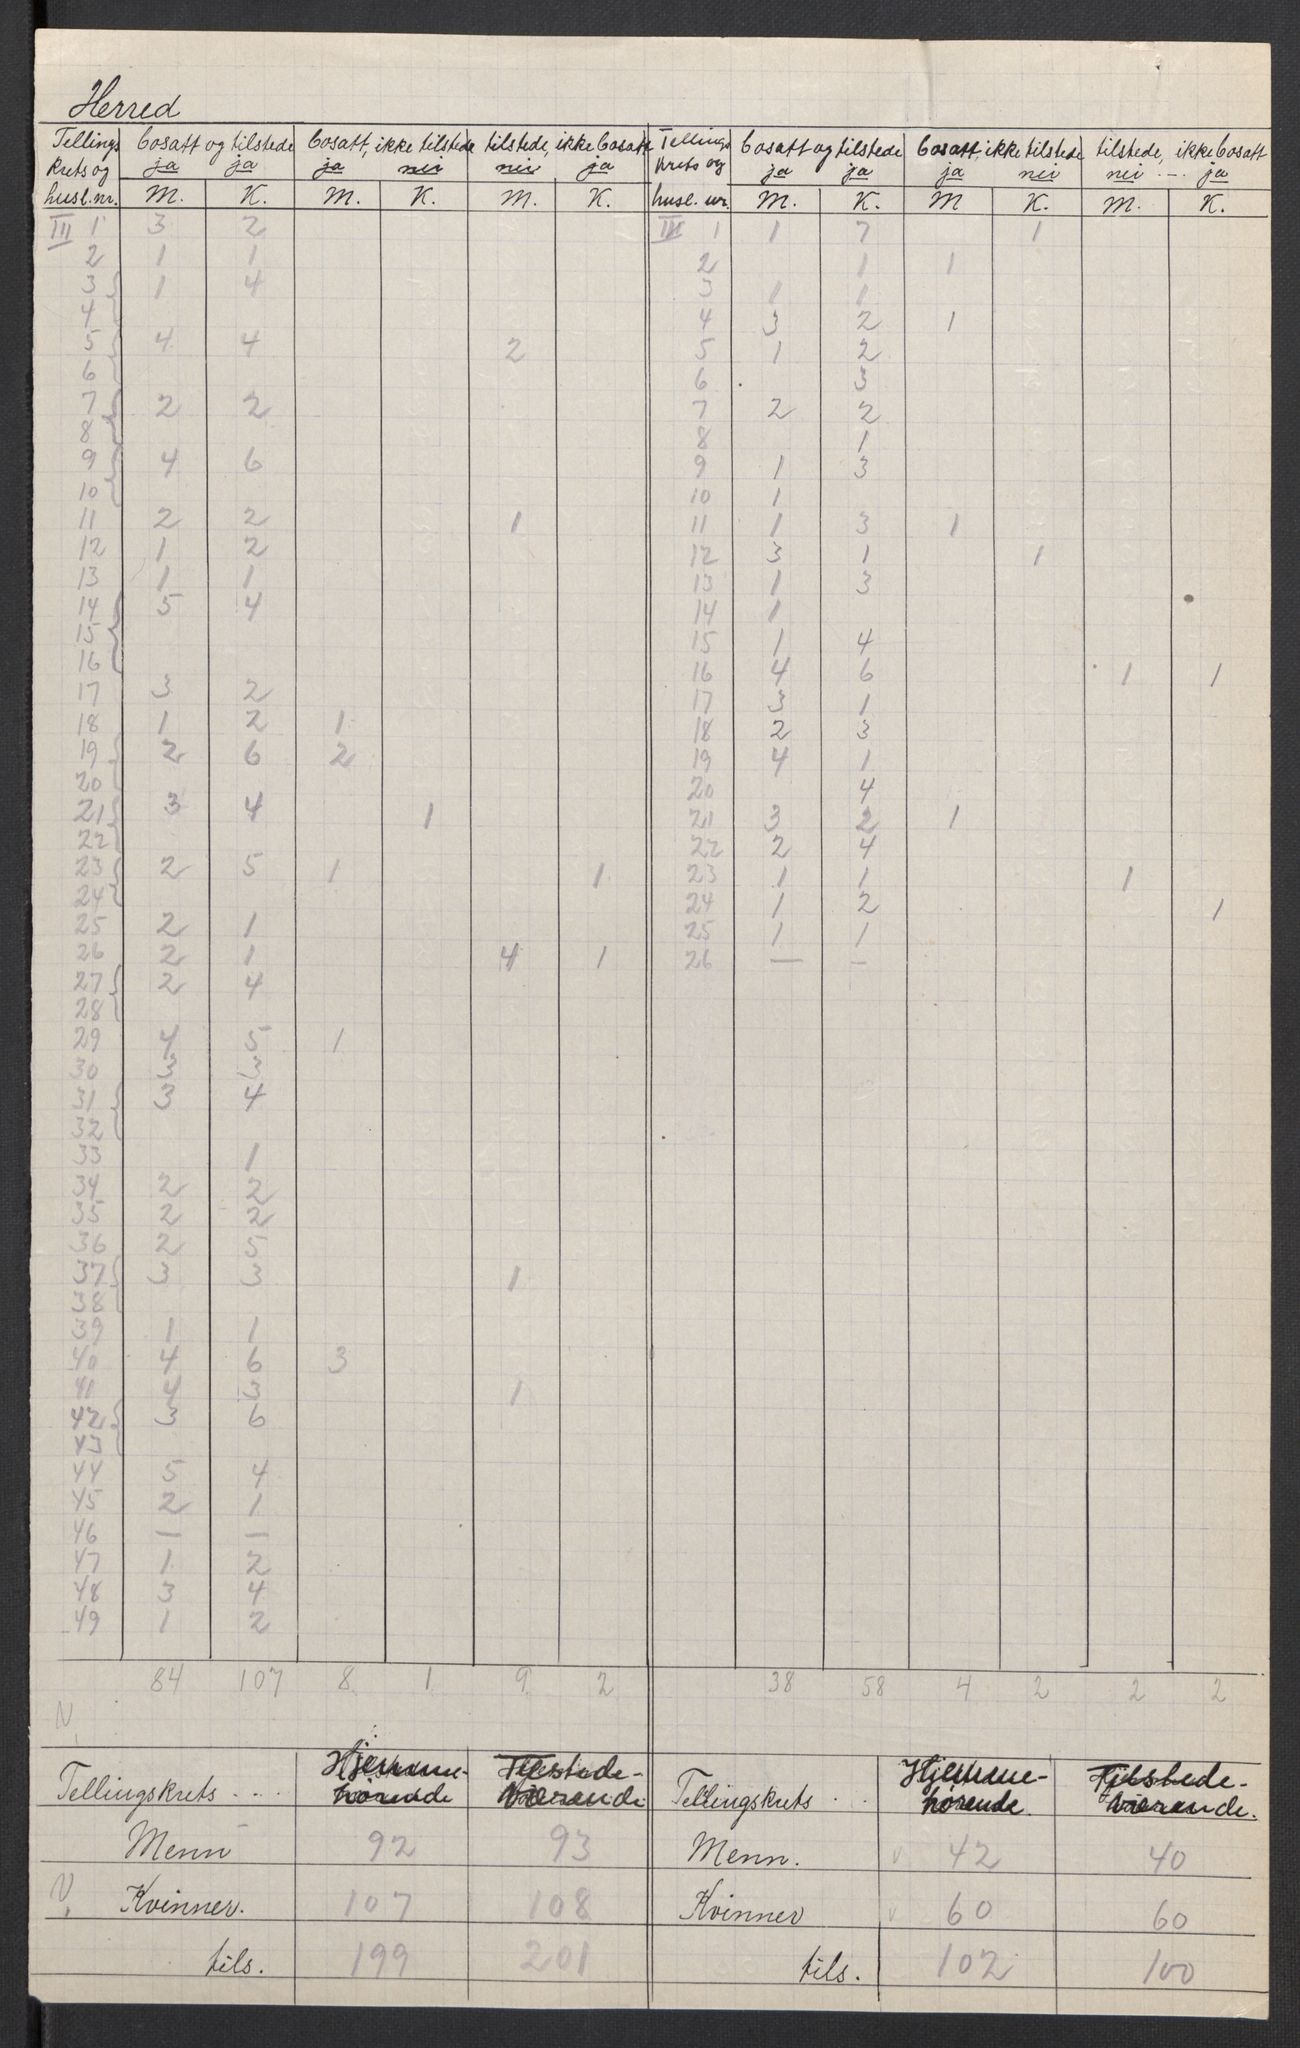 Herred
Tellings bosatt og tilstede bosatt, ikke tilstede tilstede, ikke bosatt Tellings bosatt og tilstede bosatt, ikke tilstede tilstede, ikke bosatt
krets og ja ja ja nei nei ja krets og ja ja ja nei nei - . - ja
husl. nr. M. K. M. K. M. K. husl. nr. M. K. M K. M. K.
III 1 3 2 IV 1 1 7 1
2 1 1 2 1 1
3 1 4 3 1 1
4 4 3 2 1
5 4 4 2 5 1 2
6 6 3
7 2 2 7 2 2
8 8 1
9 4 6 9 1 3
10 10 1
11 2 2 1 11 1 3 1
12 1 2 12 3 1 1
13 1 1 13 1 3
14 5 4 14 1
15 15 1 4
16 16 4 6 1 1
17 3 2 17 3 1
18 1 2 1 18 2 3
19 2 6 2 19 4 1
20 20 4
21 3 4 1 21 3 2 1
22 22 2 4
23 2 5 1 1 23 1 1 1
24 24 1 2 1
25 2 1 25 1 1
26 2 1 4 1 26 — —
27 2 4
28
29 4 5 1
30 3 3
31 3 4
32
33 1
34 2 2
35 2 2
36 2 5
37 3 3 1
38
39 1 1
40 4 6 3
41 4 3 1
42 3 6
43
44 5 4
45 2 1
46 — —
47 1 2
48 3 4
49 1 2
84 107 8 1 9 2 38 58 4 2 2 2
Tellingskrets . . . Hjemme- Tilstede- Tellingskrets . . Hjemme- Tilstede-
hørende værende hørende værende.
Menn 92 93 Menn. v 42 40
V. Kvinner. 107 108 Kvinner v 60 60
tils. 199 201 tils. 102 100